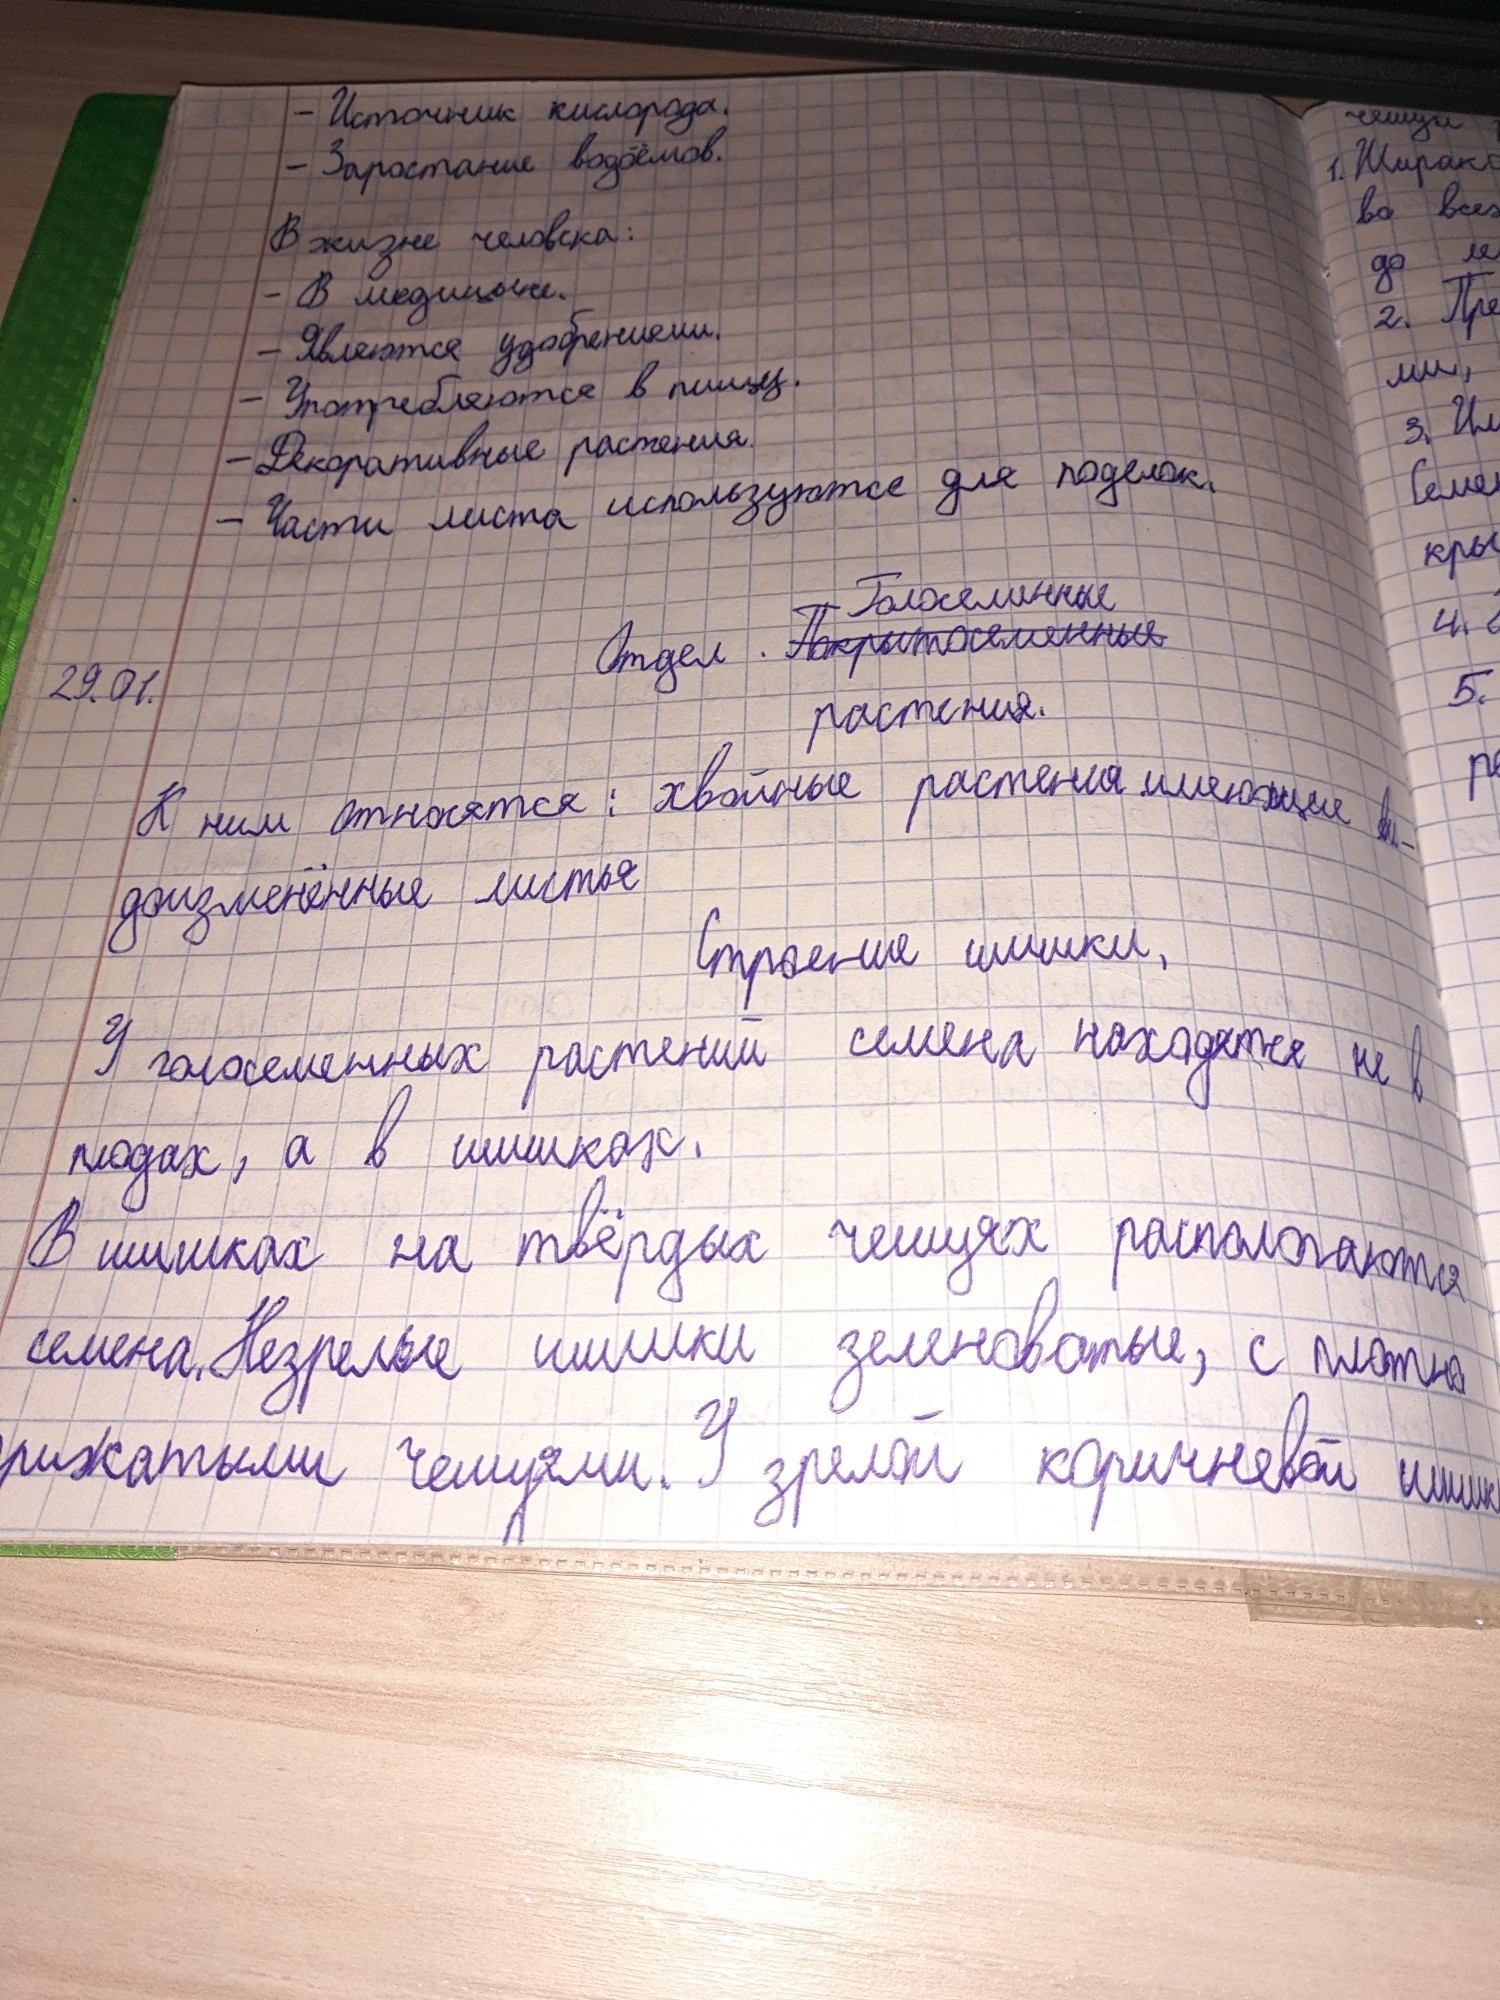 - Источник кислорода.
- Заростание водоёмов.
В жизне человека:
- В медицыне.
- Являются удобрениями.
- Употребляются в пищу.
- Декоративные растения.
- Части листа используются для поделок.
Голосеминные
29.01. Отдел. Покрытосеменные
растения.
К ним относятся: хвойные растения имеющие ви-
доизменённые листья
Строение шишки.
У голосеменных растений семена находятся не в
плодах, а в шишках.
В шишках на твёрдых чешуях распологаются
семена. Незрелые шишки зеленоватые, с плотно
рижатыми чешуями. У зрелой коричневой шишк
чешуи
1. Широко
во всех
до ле
2. Пре
ми,
3. Им
Семен
кры
4.
5.
ра